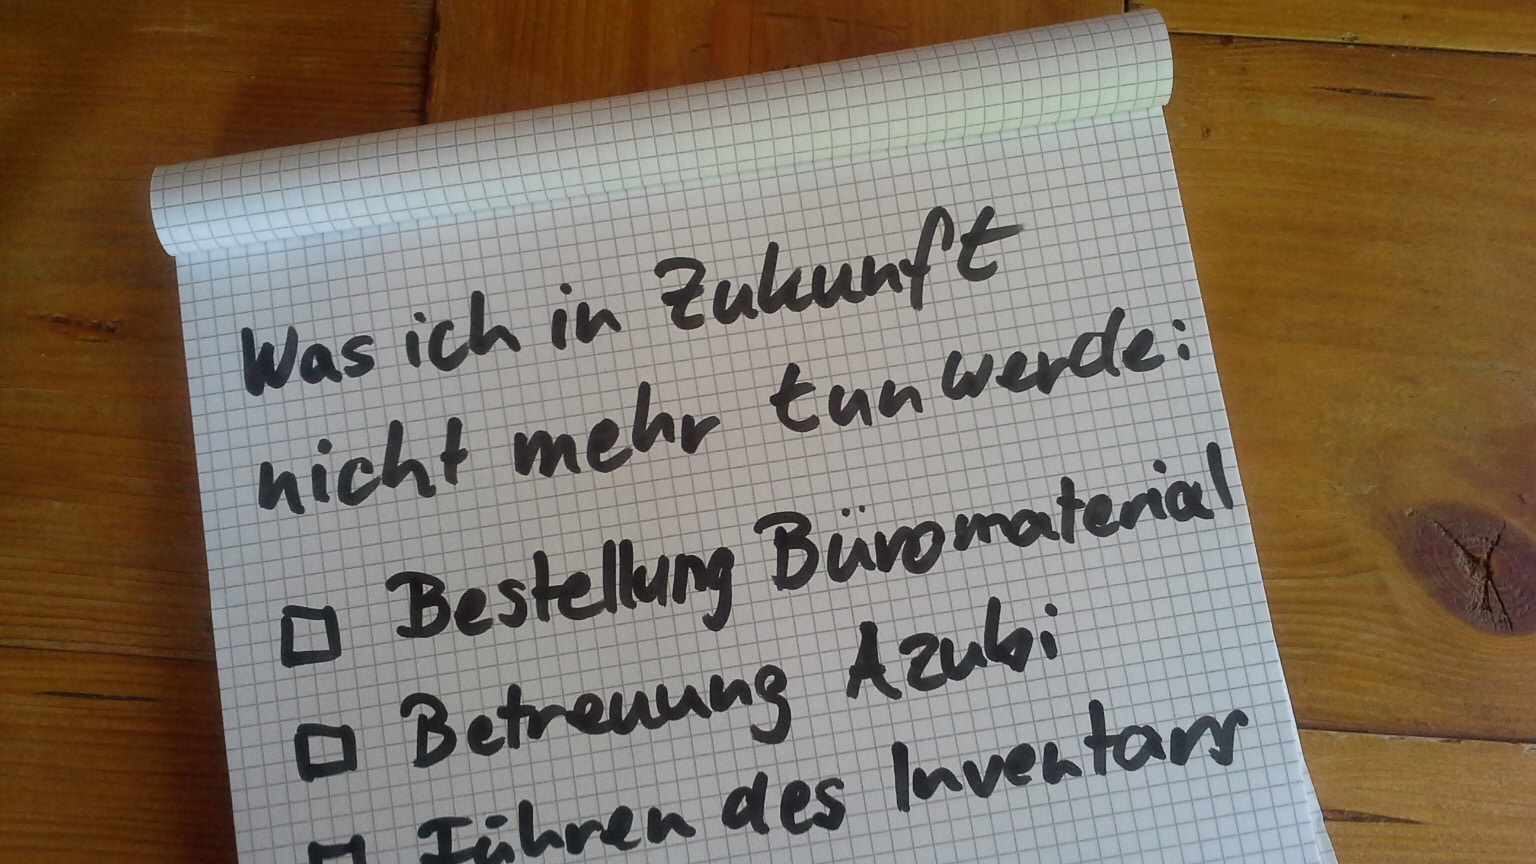 Was ich in Zukunft
nicht mehr tun werde:
Bestellung Büromaterial
Betreuung Azubi
Führen des Inventars